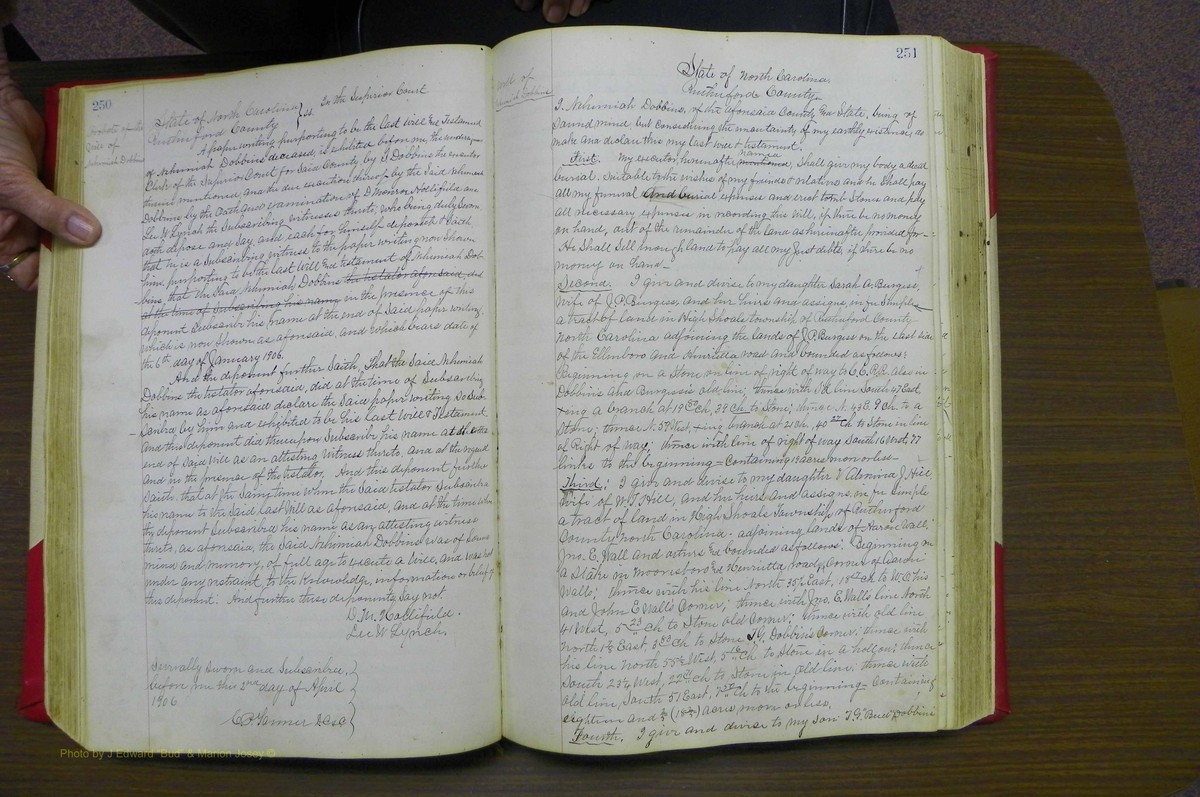 250
Probate of the
Will of
Nehimiah Dobbins
State of North Carolina } ss. In the Superior Court
Rutherford County
A paper writing purporting to be the last Will and Testament
of Nehimiah Dobbins deceased, is exhibited before me, the undersigned
Clerk of the Superior Court for Said County, by J Dobbins the executor
therein mentioned, and the due execution thereof by the Said Nehimiah
Dobbins by the Oath and examination of D Monroe Hollifield and
Lee W Lynch the Subscribing witnesses thereto; who being duly Sworn
doth depose and Say, and each for himself deposeth & Saith,
that he is a Subscribing witness to the paper writing now Shown
him, purporting to be the last Will and testament of Nehimiah Dob-
bins, that the Said, Nehimiah Dobbins the testator aforesaid, did
at the time of Subscribing his name, in the presence of this
deponent Subscribe his name at the end of Said paper writing,
which is now Shown as aforesaid, and which bears date of
the 6th day of January 1906.
And the deponent further Saith, That the Said Nehimiah
Dobbins the testator aforesaid, did at the time of Subscribing
his name as aforesaid declare the Said paper writing So Sub-
scribed by him and exhibited to be his last Will & Testament,
and this deponent did thereupon Subscribe his name at the
end of Said Will as an attesting Witness thereto, and at the request
and in the presence of the testator. And this deponent further
Saith, that at the Same time when the Said testator Subscribed
his name to the Said last Will as aforesaid, and at the time when
the deponent Subscribed his name as an attesting witness
thereto, as aforesaid, the Said Nehimiah Dobbins was of Sound
mind and memory, of full age to execute a Will, and was not
under any restraint, to the Knowledge, information or belief of
this deponent: And further these deponents Say not.
D. M. Hollifield.
Lee W Lynch.
Severally Sworn and Subscribed,
before me this 2nd day of April
1906
C.P. Tanner CSC
251
Will of
Nehimiah Dobbins
State of North Carolina,
Rutherford County.
I. Nehimiah Dobbins, of the aforesaid County and State, being of
Sound mind, but Considering the uncertainty of my earthly existence, do
make and declare this my last will & testament:
First: My executor, hereinafter mentioned named, Shall give my body a decent
burial. Suitable to the wishes of my friends & relations and he Shall pay
all my funeral And burial expenses and erect tomb Stones and pay
all necessary expenses in recording this Will, if there be no money
on hand, out of the remainder of the land as hereinafter provided for—
He Shall Sell enough land to pay all my Just debts, if there be no
money on hand—
Second. I give and devise to my daughter Sarah A. Burgess,
wife of J.P. Burgess, and her heirs and assigns in fee Simple
a tract of land in High Shoals township of Rutherford County—
North Carolina adjoining the lands of J.P. Burgess on the east side
of the Ellenboro and Henrietta road and bounded as follows:
Beginning on a Stone on line of right of way to C.C.R.R. also in
Dobbins and Burgess old line; thence with Old line South 47 East,
xing a branch at 19 ch, 39 ch to Stone; thence N. 43 E. 9 Ch. to a
Stone; thence N. 59 West, xing branch at 21 ch, 40 ch to Stone in line
of Right of Way; thence with line of right of way South 16 West, 77
links to the beginning = Containing 19 acres more or less—
Third; I give and devise to my daughter Almina J Hill
wife of W.T. Hill, and her heirs and assigns, in fee Simple
a tract of land in High Shoals Township of Rutherford
County North Carolina. adjoining lands of Walls,
Jno. E. Wall and others and bounded as follows: Beginning on
a Stake in Mooresboro and Henrietta road, Corner of
Walls; thence with his line North 35½ East, 18 ch to his
and John E Walls Corner; thence with Jno. E. Walls line North
41 West, 5 ch to Stone old Corner; thence with old line
North 1½ East, ch to Stone Dobbins Corner, thence with
his line North 55½ West, 5 ch to Stone in a hollow; thence
South 23¼ West, 22 ch to Stone in old line; thence with
old line, South 51 East, 7 ch to the beginning = Containing
eighteen and ¾ (18¾) acres more or less.
Fourth. I give and devise to my Son T.G. "Bud" Dobbins
Photo by J Edward "Bud" & Marion Josey ©